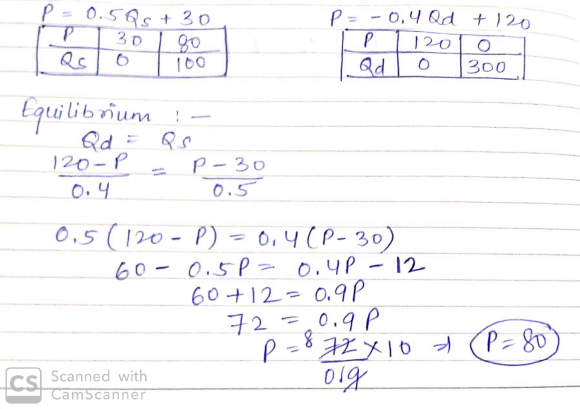 P = 0.5Qs + 30
P 30 80
Qs 0 100
P = -0.4Qd + 120
P 120 0
Qd 0 300
Equilibrium :-
Qd = Qs
120-P/0.4 = P-30/0.5
0.5(120-P) = 0.4(P-30)
60 - 0.5P = 0.4P - 12
60 + 12 = 0.9P
72 = 0.9P
P = 8 72 × 10 / 0.9 ⇒ P = 80
CS Scanned with
CamScanner